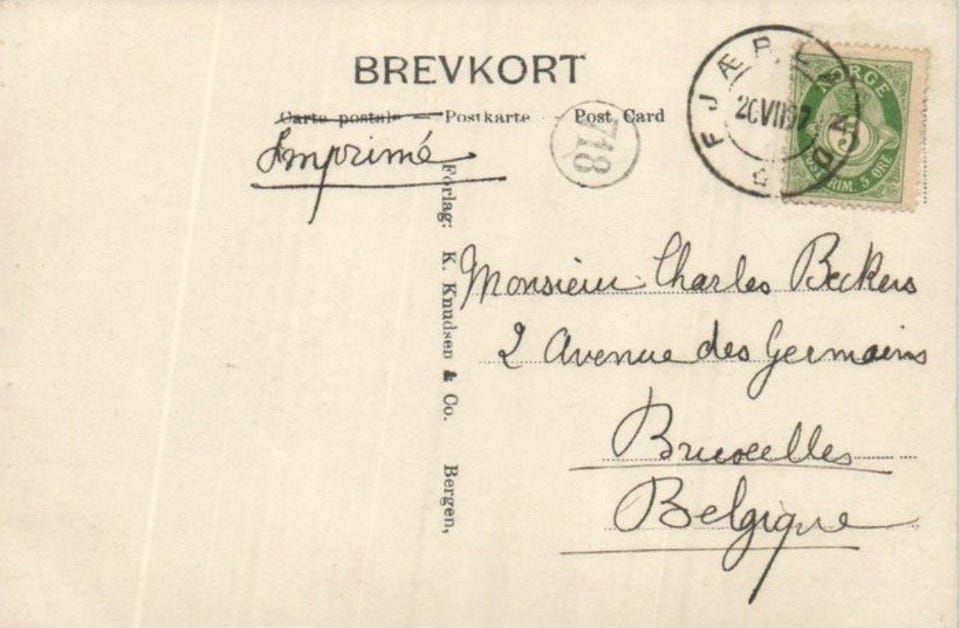 BREVKORT
Carte postale — Postkarte Post Card
Imprimé
718
FJÆRLAND
20 VII 07
NORGE
5
POSTFRIM. 5 ØRE
Forlag: K. Knudsen & Co. Bergen,
Monsieur Charles Beckers
2 Avenue des Germains
Bruxelles
Belgique